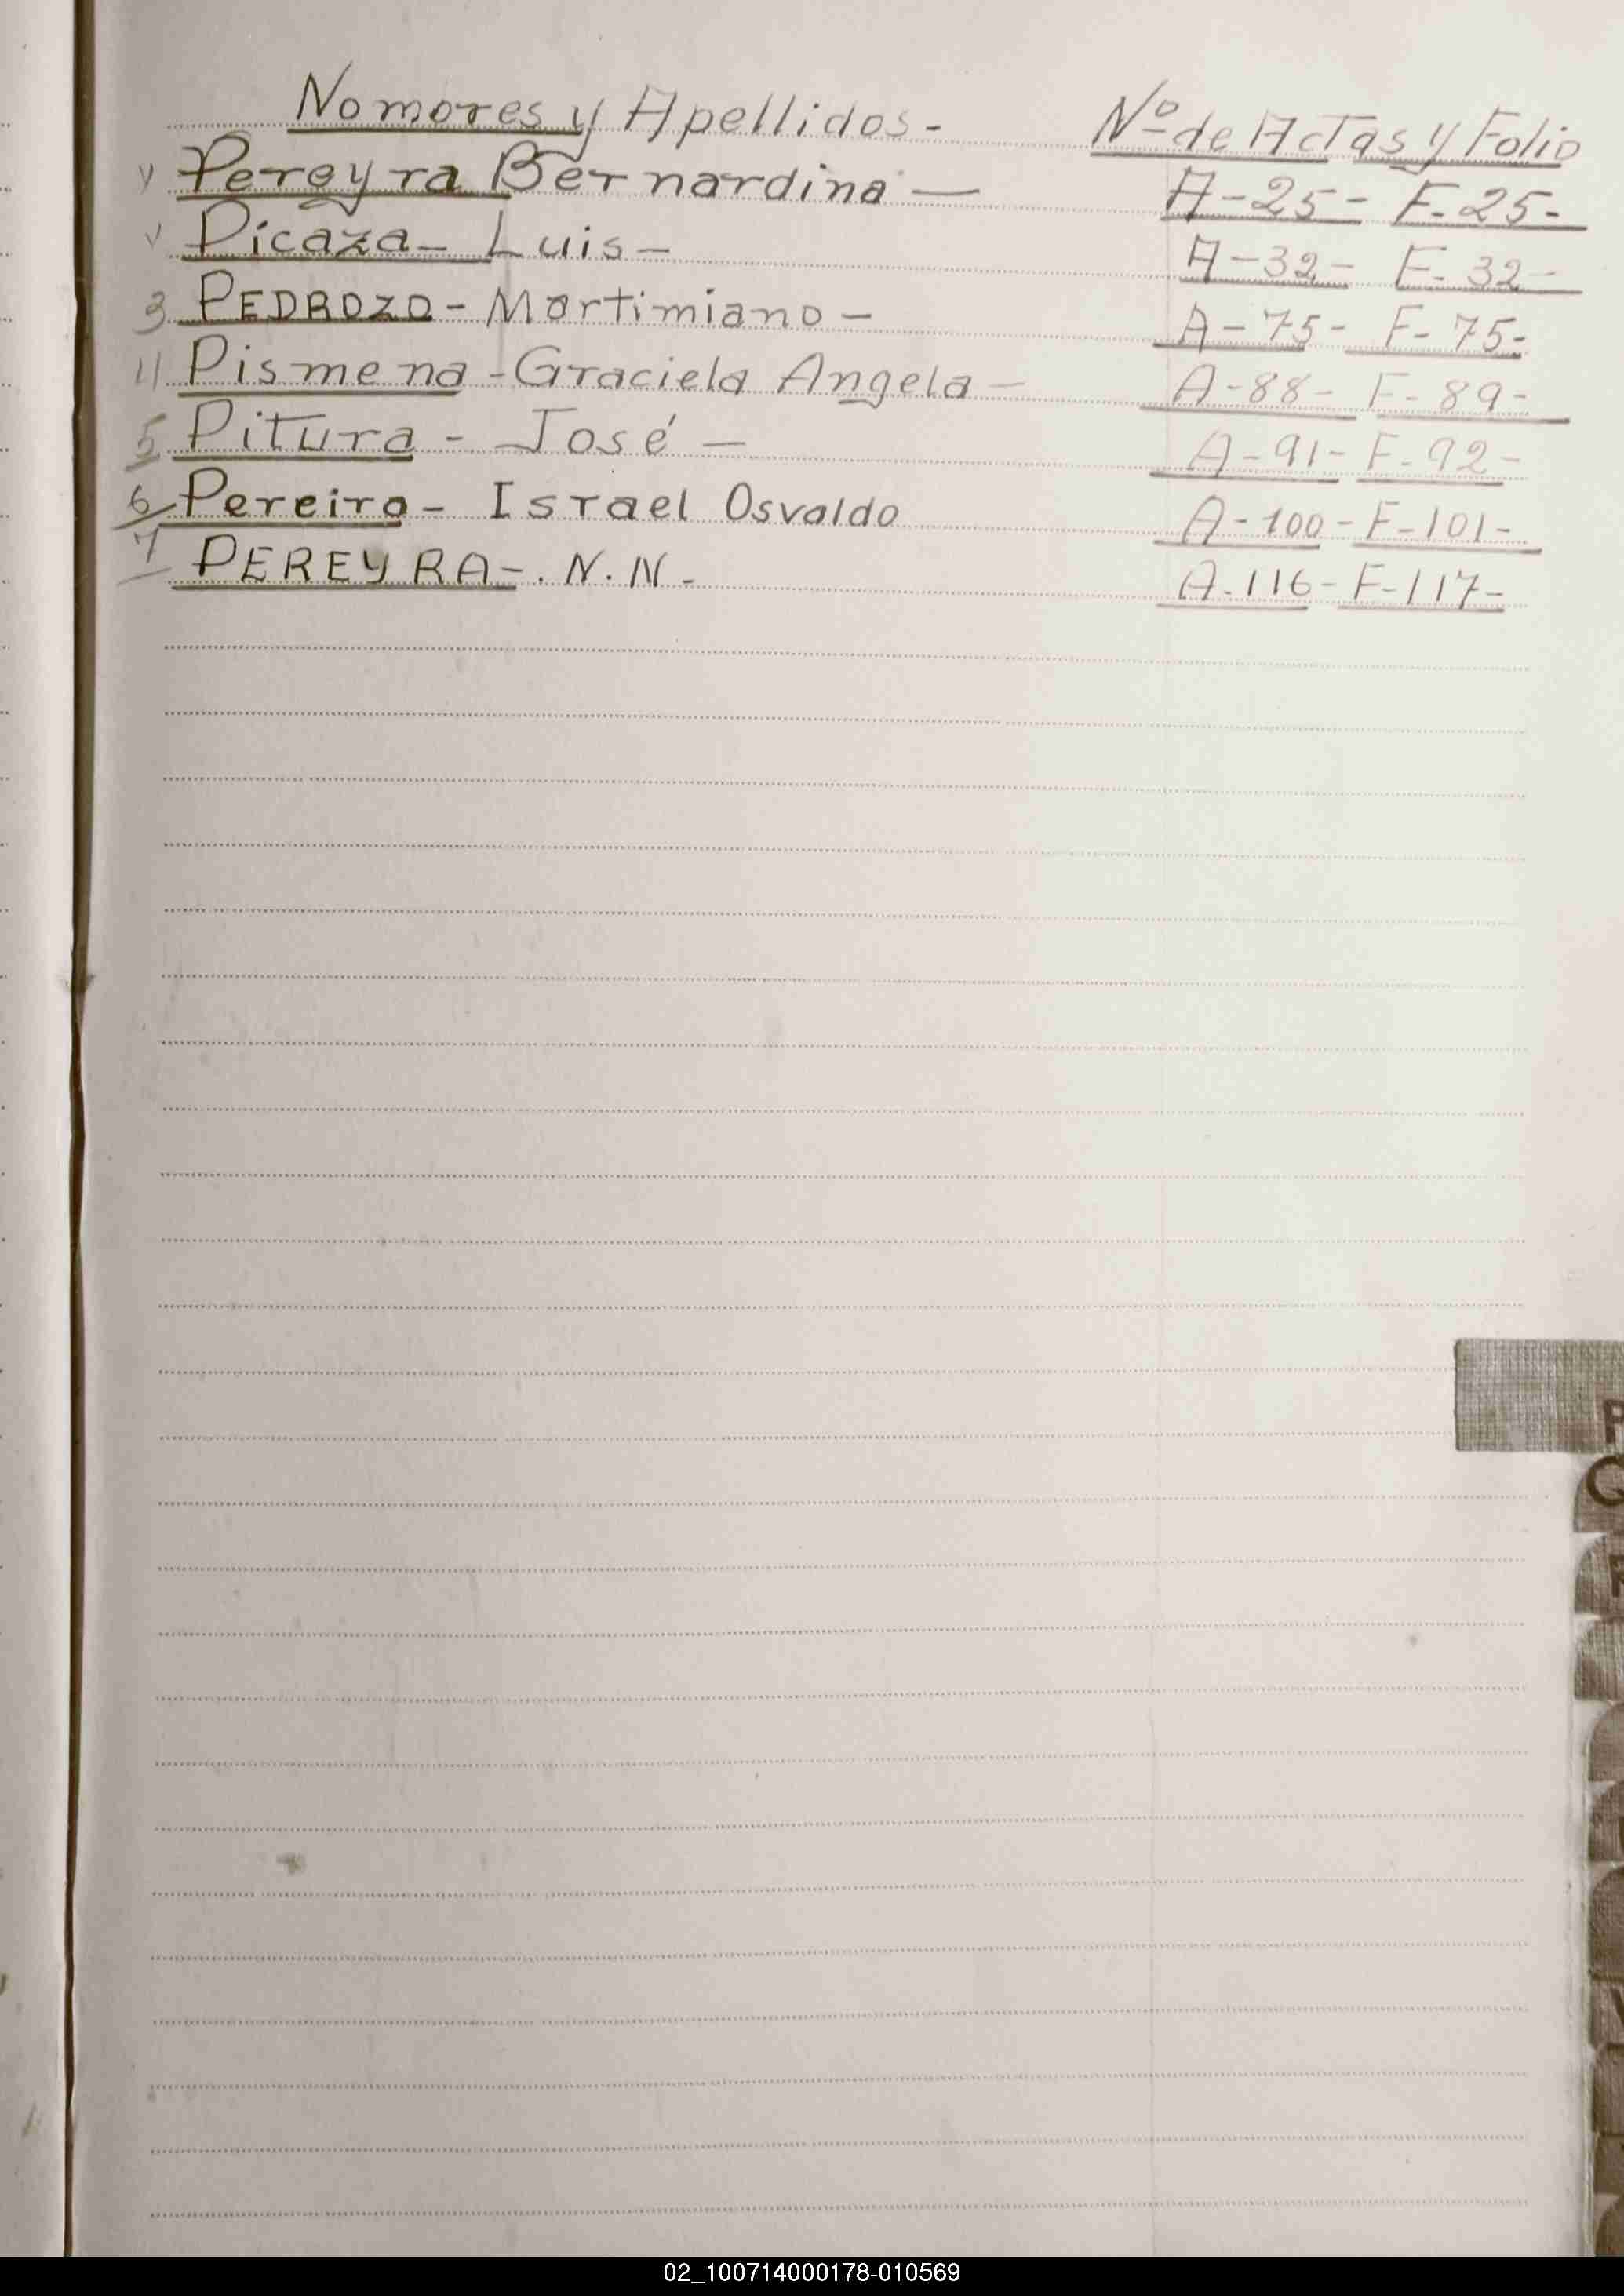 Nombres y Apellidos - Nº de Actas y Folio
Pereyra Bernardina — A-25- F-25-
Picaza- Luis- A-32- F-32-
3 PEDROZO- Martimiano- A-75- F-75-
4 Pismena-Graciela Angela- A-88- F-89-
5 Pitura- José- A-91- F-92-
6 Pereira- Israel Osvaldo A-100- F-101-
7 PEREYRA-. N.N- A-116- F-117-
P
R
02_100714000178-010569